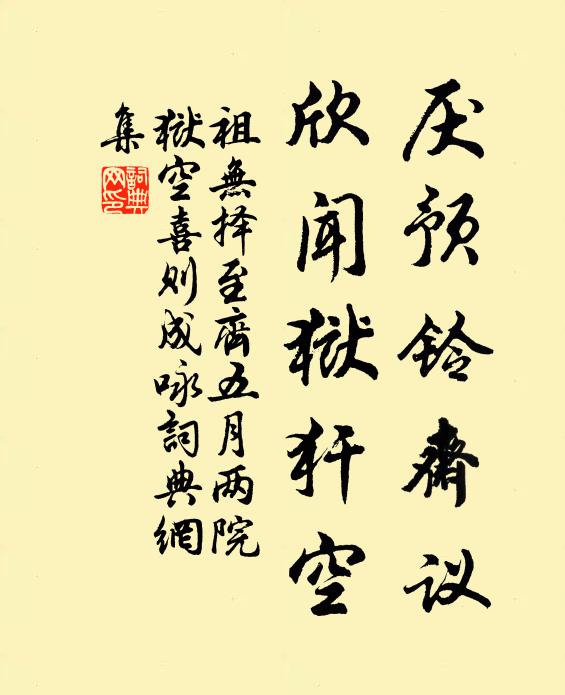 厌预铃斋议
欣闻狱犴空
祖無择至齊五月两院
狱空喜则成咏詞典網
集
詞典
网印